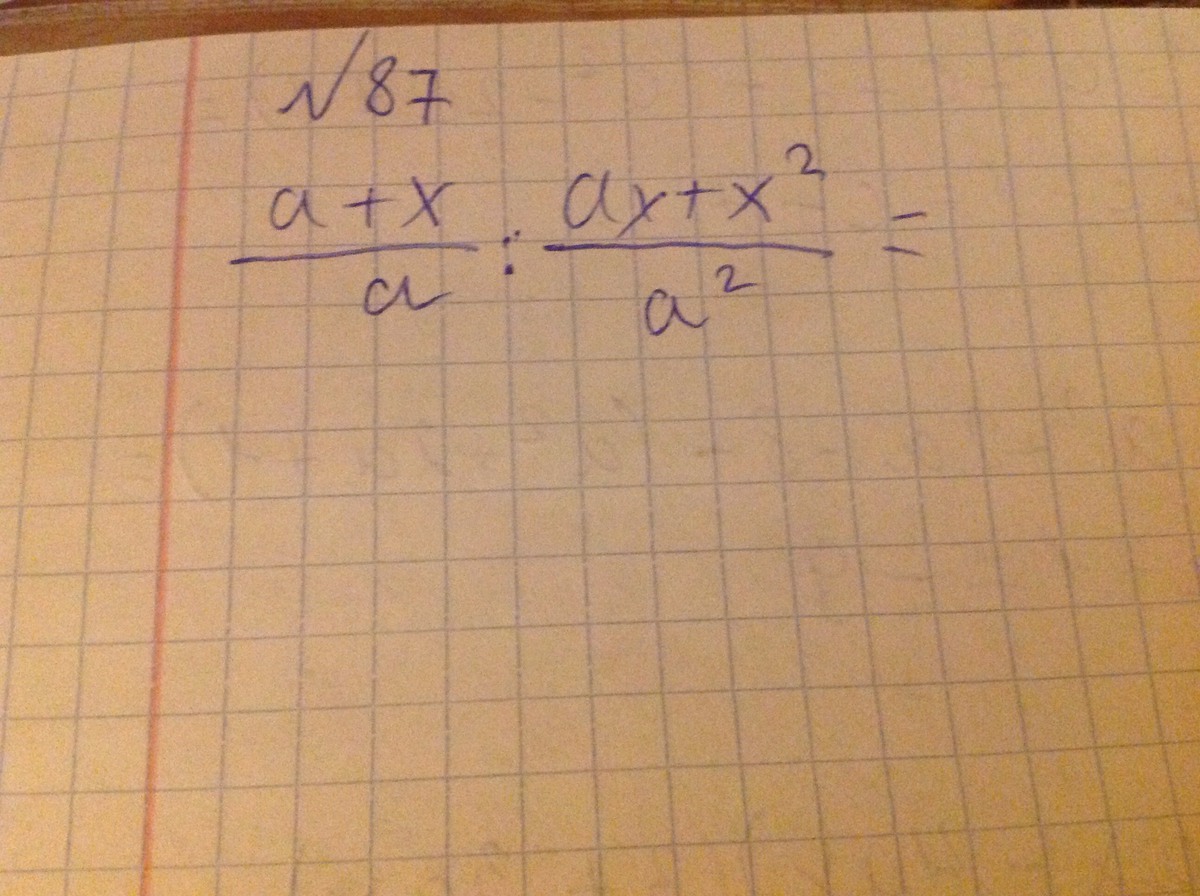 √87
(a+x)/a : (ax+x²)/a² =